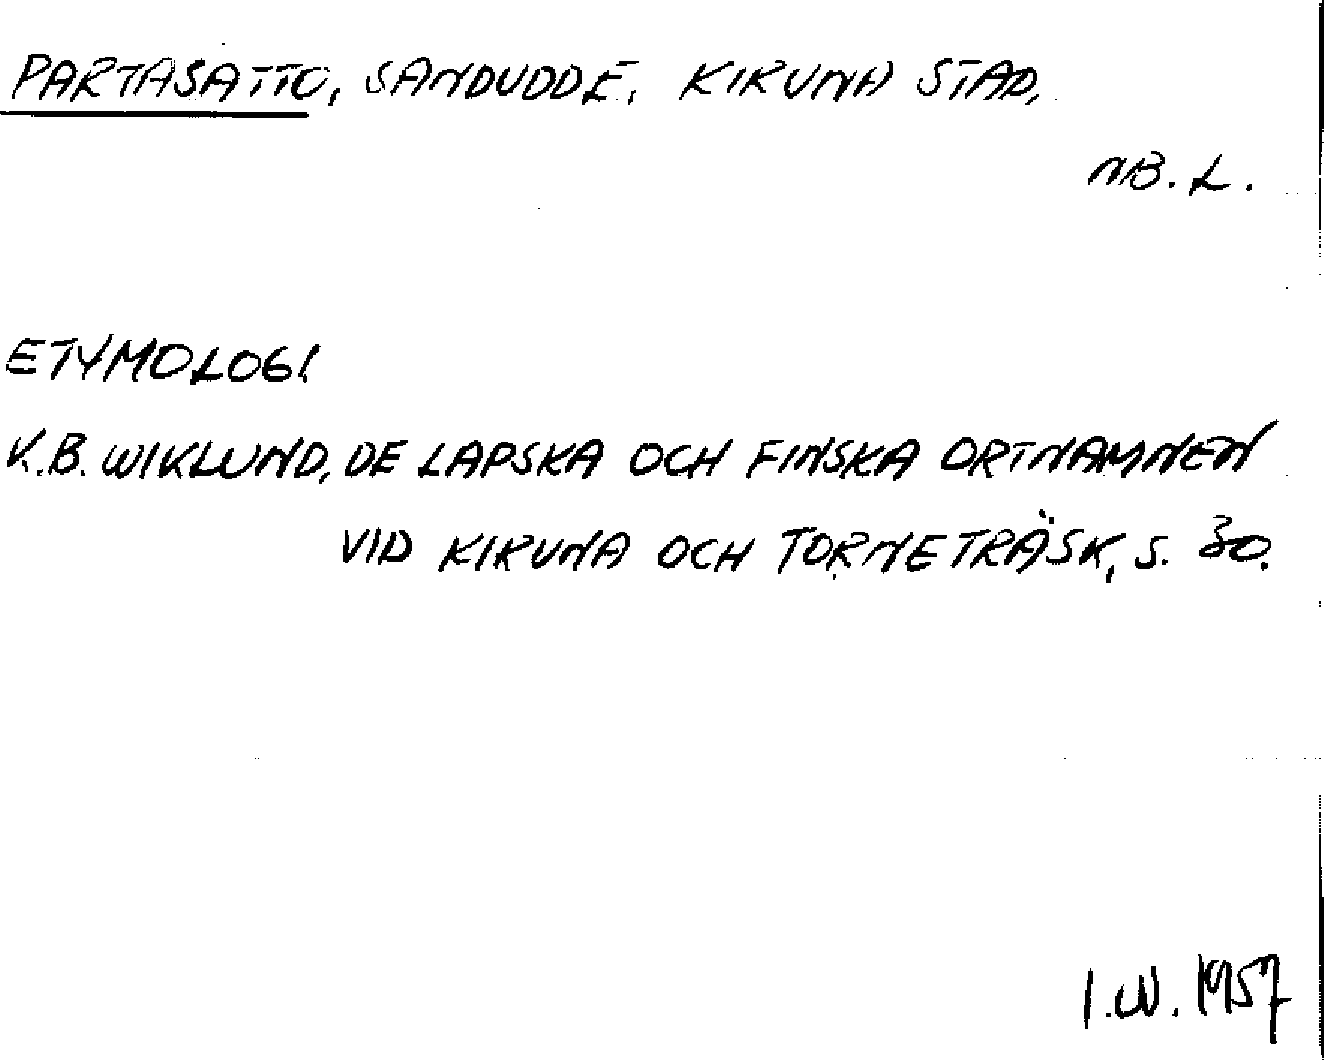 PARTASATTO, SANDUDDE, KIRUNA STAD,
NB. L.
ETYMOLOGI
K.B. WIKLUND, DE LAPSKA OCH FINSKA ORTNAMNEN
VID KIRUNA OCH TORNETRÄSK, S. 30.
I.W. 1957